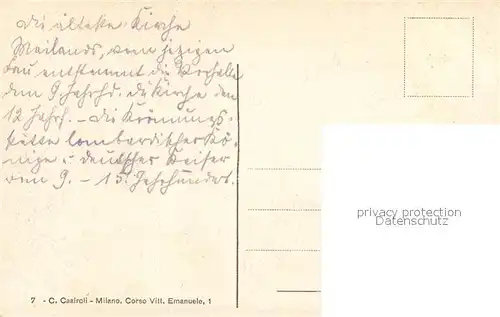 die älteste Kirche
Mailands, vom jezigen
Bau entstammt die Vorhalle
dem 9. Jahrhd. die Kirche dem
12 Jahrh. – die Krönungs-
stätte lombardischer Kö-
nige u. deutscher Keiser
vom 9. – 15. Jahrhundert.
7 - C. Casiroli - Milano, Corso Vitt. Emanuele, 1
privacy protection
VARIOUS IMAGES